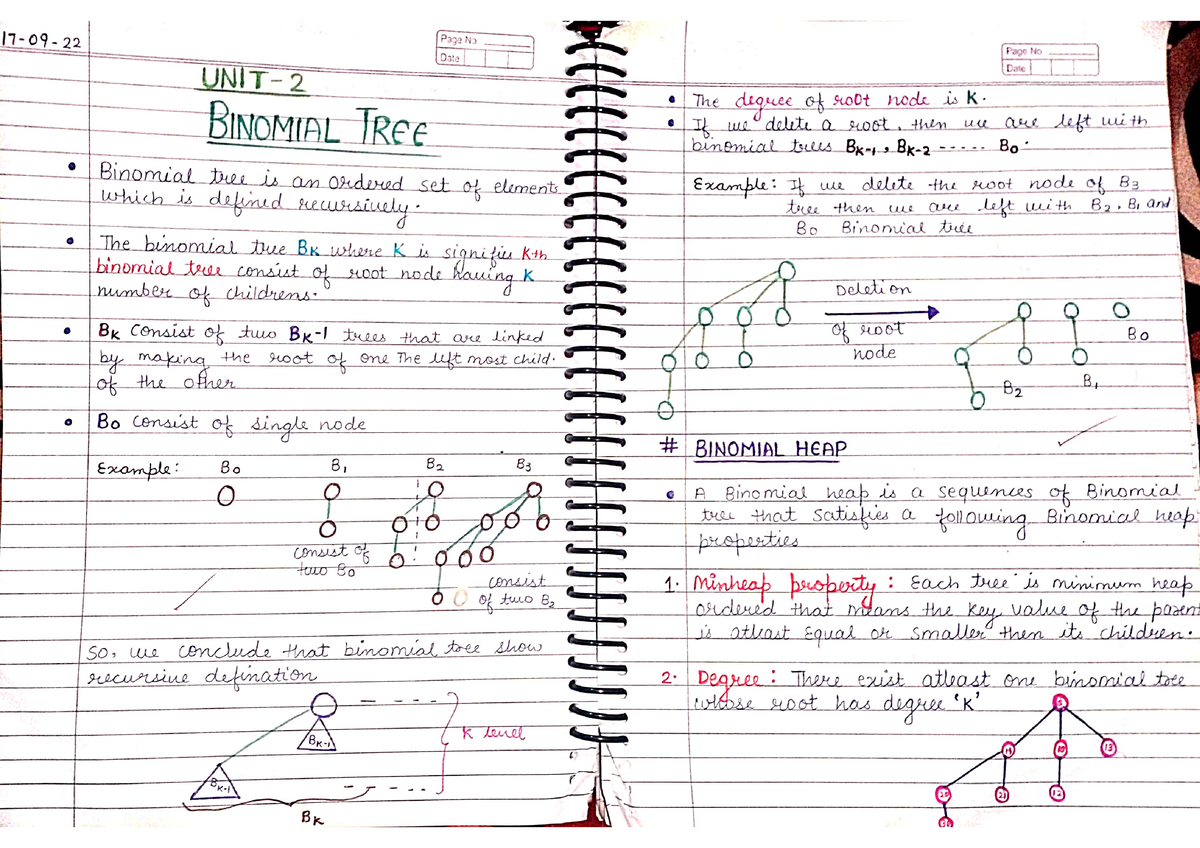 17-09-22
Page No
Date
UNIT-2
BINOMIAL TREE
• Binomial tree is an ordered set of elements
which is defined recursively.
• The binomial tree BK where K is signifies Kth
binomial tree consist of root node having K
number of childrens.
• BK Consist of two BK-1 trees that are linked
by making the root of one The left most child.
of the other
• B0 Consist of single node
Example: B0 B1 B2 B3
consist of
two B0
consist
of two B2
So, we conclude that binomial tree show
recursive defination
BK-1
K level
BK-1
BK
Page No
Date
• The degree of root node is K.
• If we delete a root, then we are left with
binomial trees BK-1, BK-2 ----- B0.
Example: If we delete the root node of B3
tree then we are left with B2, B1 and
B0 Binomial tree
Deletion
of root
node
B0
B2
B1
# BINOMIAL HEAP
• A Binomial heap is a sequences of Binomial
tree that satisfies a following Binomial heap
properties
1. Minheap property: Each tree is minimum heap
ordered that means the key value of the parent
is atleast Equal or smaller then its children.
2. Degree: There exist atleast one binomial tree
whose root has degree 'K'
10 13
21 12
30